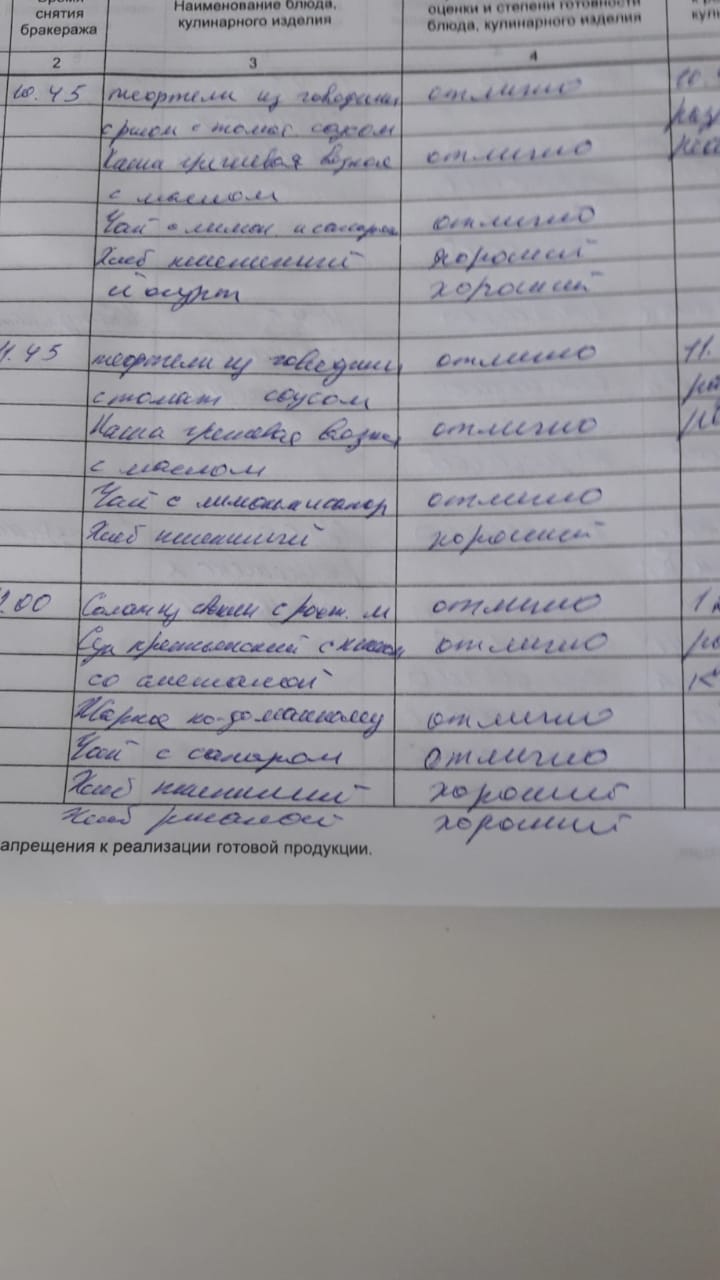 снятия
бракеража
Наименование блюда,
кулинарного изделия
оценки и степени готовности
блюда, кулинарного изделия
2 3 4
10.45 тефтели из говядины отлично
с рисом с томат. соусом
Каша гречневая вязкая отлично
с маслом
Чай с лимон. и сахаром отлично
Хлеб пшеничный хороший
йогурт хороший
.45 тефтели из говядины отлично 11.
с томат соусом
Каша гречневая вязкая отлично
с маслом
Чай с лимоном и сахар отлично
Хлеб пшеничный хороший
.00 Салат из свеклы с раст. м отлично
Суп крестьянский с отлично
со сметаной
Жаркое по-домашнему отлично
Чай с сахаром отлично
Хлеб пшеничный хороший
Хлеб ржаной хороший
апрещения к реализации готовой продукции.